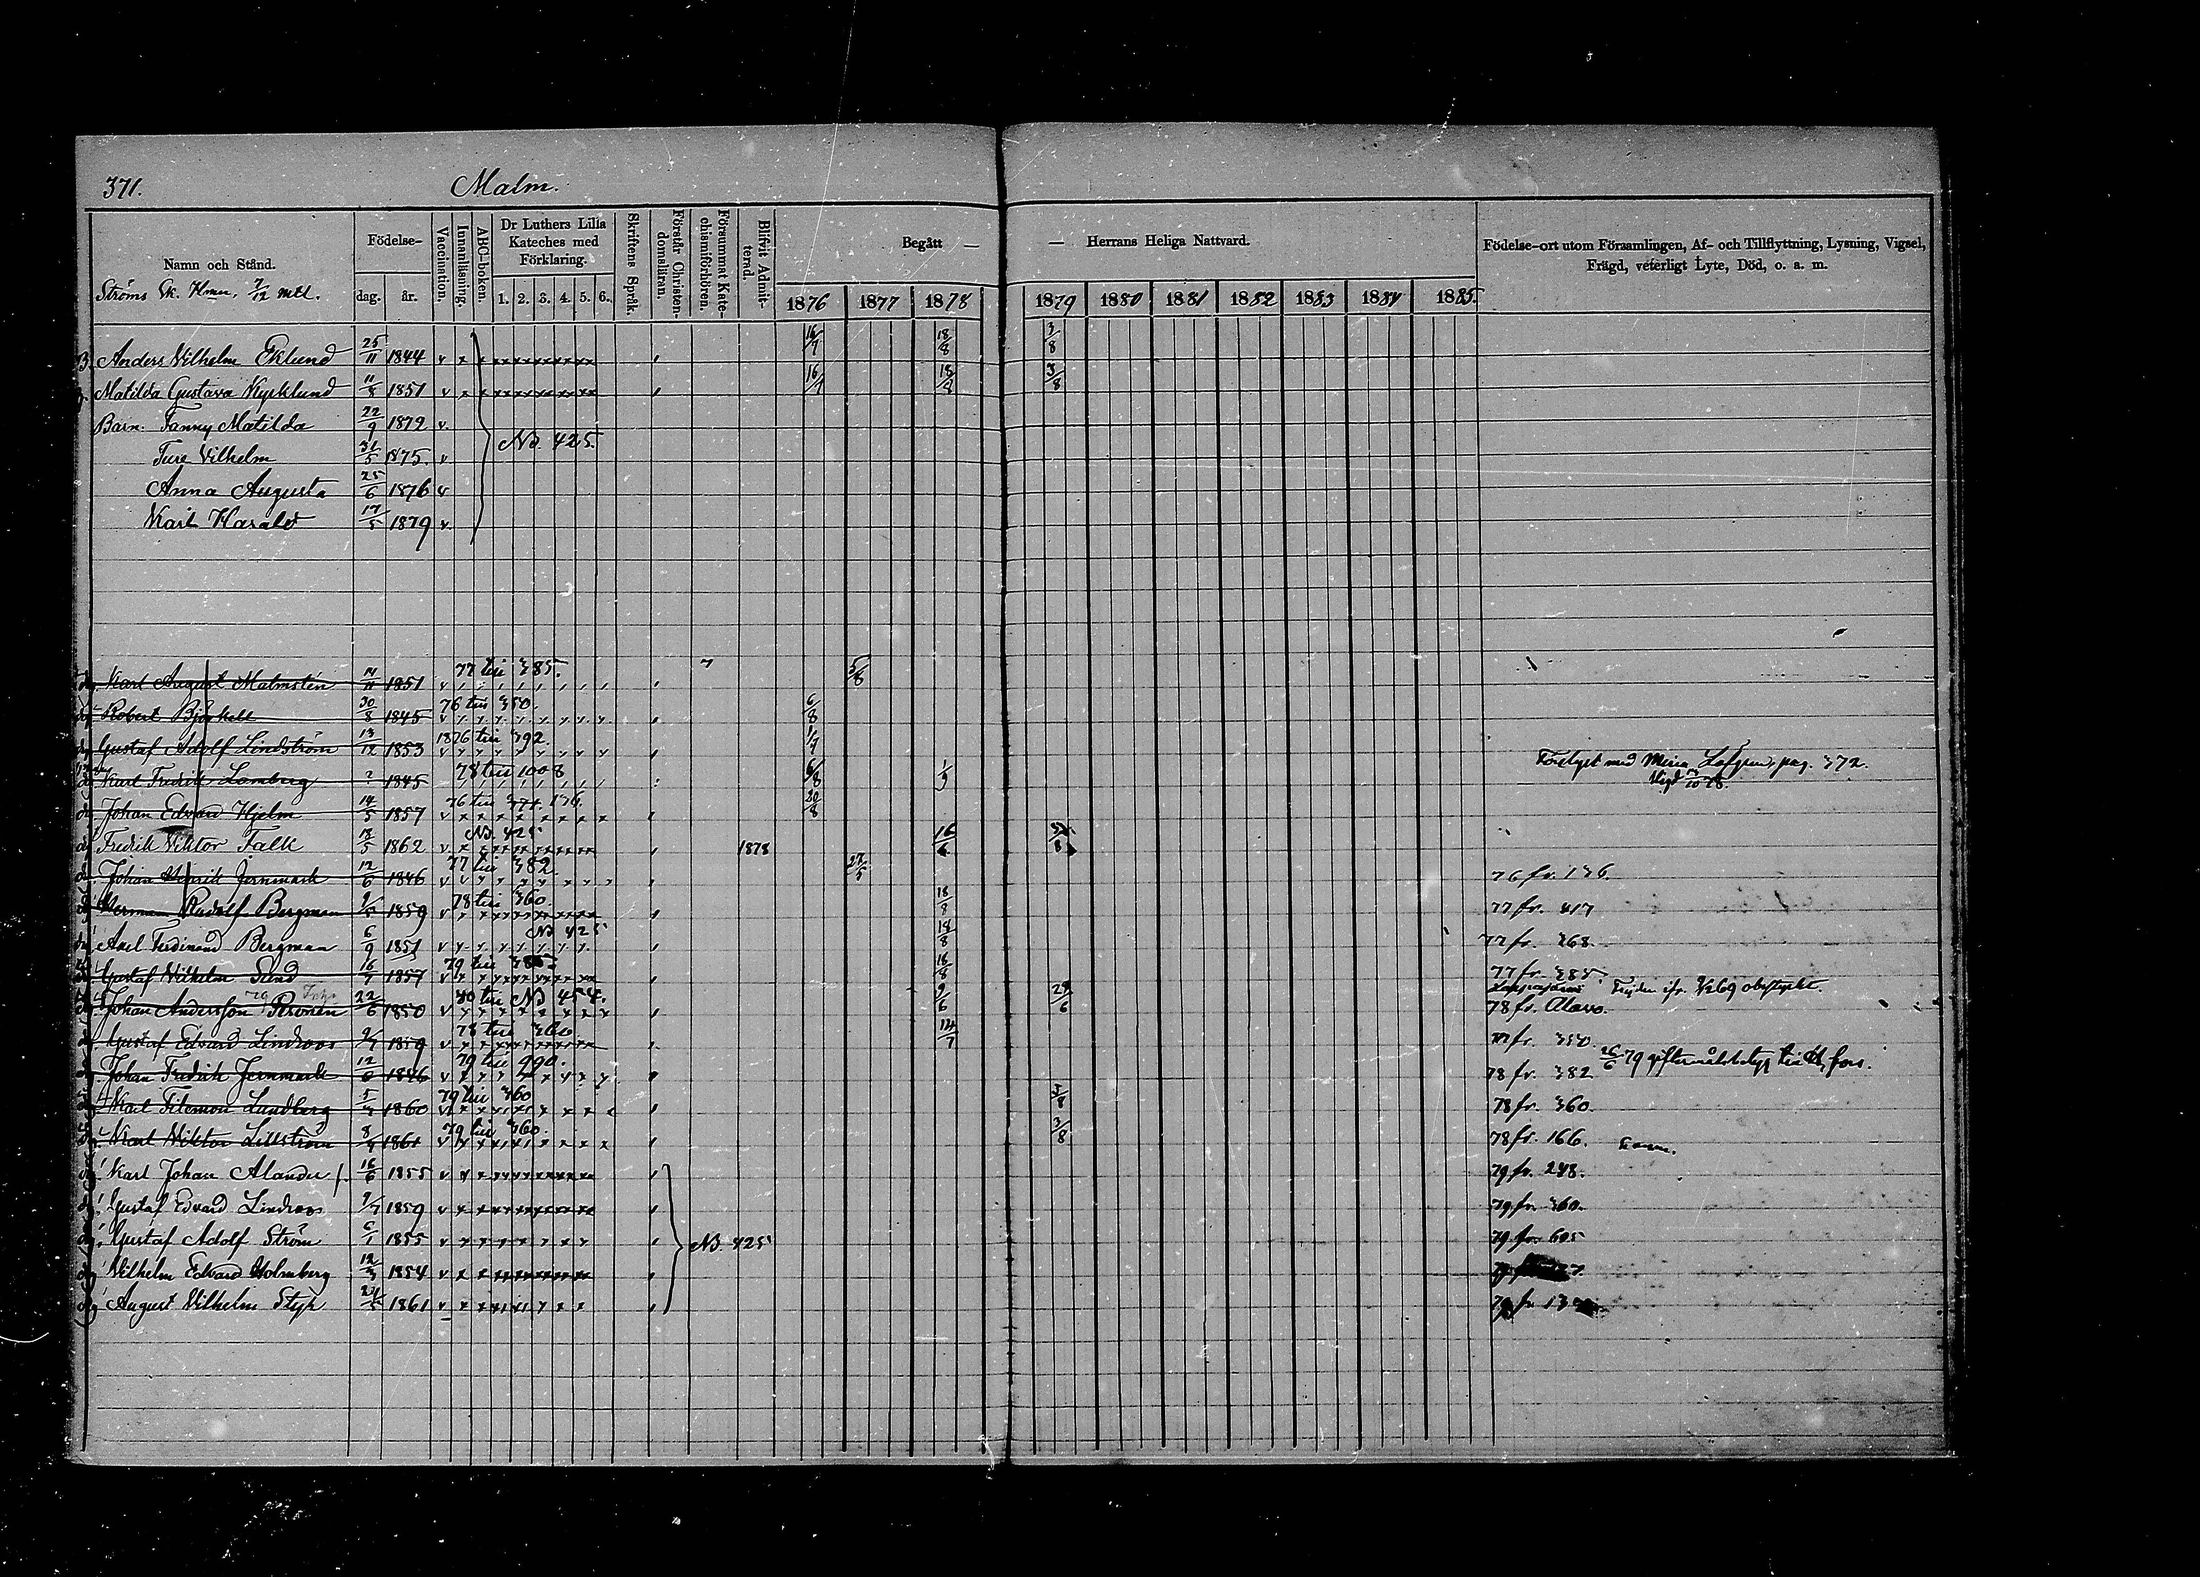 371. Malm.
Namn och Stånd.
Ströms Sk. Hmn. 7/12 mtl.
Födelse-
dag. år.
Vaccination.
Innanläsning.
ABC-boken.
Dr Luthers Lilla Kateches med Förklaring.
1. 2. 3. 4. 5. 6.
Skriftens Språk.
Förstår Christendomsläran.
Försummat Katechismiförhören.
Blifvit Admitterad.
Begått — — Herrans Heliga Nattvard.
1876 1877 1878 1879 1880 1881 1882 1883 1884 1885.
Födelse-ort utom Församlingen, Af- och Tillflyttning, Lysning, Vigsel, Frägd, veterligt Lyte, Död, o. a. m.
B. Anders Vilhelm Eklund 25/11 1844 v 16/7 18/8 3/8
Matilda Gustava Kycklund 1851 v 16/7 18/8 3/8
Barn: Fanny Matilda 22/9 1872 v.
Ture Vilhelm 31/5 1875. v
NB. 425.
Anna Augusta 25/6 1876 v
Karl Harald 17/5 1879 v.
Karl August Malmsten 14/11 1851 v 77 till 385. 5/8
Robert Björkell 30/8 1845 v 76 till 350. 6/8
Gustaf Adolf Lindström 13/12 1853 v 1876 till 392.
Karl Fredrik Lomberg 1845 78 till 1008 6/8 1/9 med pag. 372.
Vigd
Johan Edvard Hjelm 14/5 1857 v 76 till 374. 136. 20/8
Fredrik Viktor Falk 18/5 1862 v NB. 425 1878 16/6
Johan Henrik Jernmark 12/6 1846 v 77 till 382. 27/5 76 fr. 136.
Herman Rudolf Bergman 1859 v 78 till 360. 18/8 77 fr. 417
Axel Ferdinand Bergman 6/9 1851 v NB 425 18/8 77 fr. 368.
Gustaf Vilhelm Sund 16/7 1857 v 79 till 18/8 77 fr. 385
Johan Andersson Peronen 22/6 1850 v 80 till NB 454. 9/6 29/6 78 fr. Alavo.
Gustaf Edvard Lindroos 9/7 1859 v 78 till 360. 14/7 77 fr. 350.
Johan Fredrik Jernmark 12/6 1846 v 79 till 990. 78 fr. 382 26/6 79 till H,fors.
Karl Filemon Lundberg 1860 v 79 till 360 3/8 78 fr. 360.
Karl Viktor Lillström 1861 v 79 till 360. 3/8 78 fr. 166.
Karl Johan Alander 16/6 1855 v 79 fr. 248.
Gustaf Edvard Lindroos 9/7 1859 v 79 fr. 360.
Gustaf Adolf Ström 6/1 1855 v NB. 425 79 fr. 605
Vilhelm Edvard Holmberg 1854 v
August Vilhelm Styk 1861 v 79 fr.